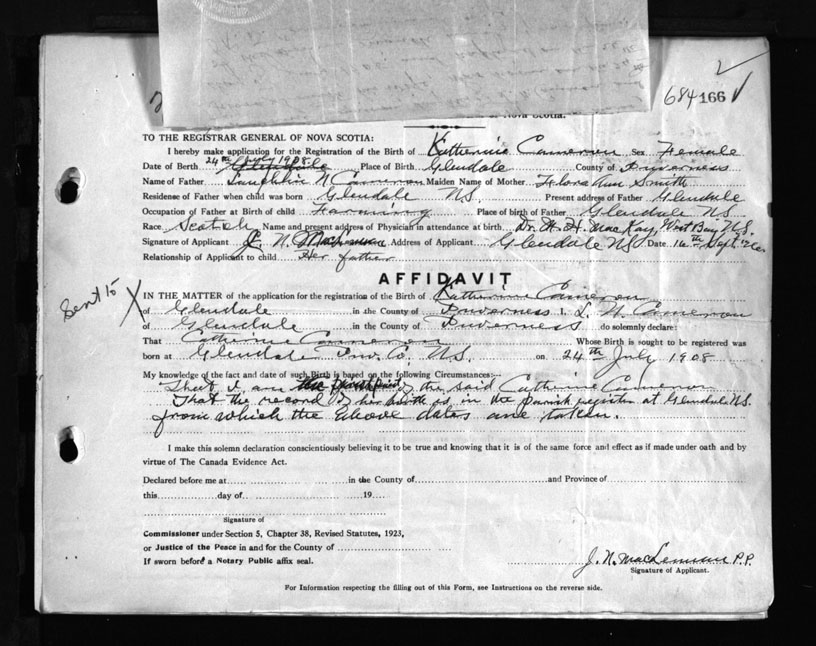 684166
of Nova Scotia.
TO THE REGISTRAR GENERAL OF NOVA SCOTIA:
I hereby make application for the Registration of the Birth of Katherine Cameron Sex Female
Date of Birth 24th July 1908 Glendale Place of Birth Glendale County of Inverness
Name of Father Lauchlin N Cameron Maiden Name of Mother Flora Ann Smith
Residense of Father when child was born Glendale NS. Present address of Father Glendale
Occupation of Father at Birth of child Farming Place of birth of Father Glendale NS
Race Scotch Name and present address of Physician in attendance at birth Dr. MacKay, West Bay NS.
Signature of Applicant J. N. MacLennan Address of Applicant Glendale NS Date 16th Sept
Relationship of Applicant to child Her father
AFFIDAVIT
Sent 15
IN THE MATTER of the application for the registration of the Birth of Katherine Cameron
of Glendale in the County of Inverness I, L. N. Cameron
of Glendale in the County of Inverness do solemnly declare:
That Catherine Cameron Whose Birth is sought to be registered was
born at Glendale Inv. Co. NS. on 24th July 1908
My knowledge of the fact and date of such Birth is based on the following Circumstances:
That I am the of the said Catherine Cameron
That the record of her birth is in the parish register at Glendale NS.
from which the above dates are taken.
I make this solemn declaration conscientiously believing it to be true and knowing that it is of the same force and effect as if made under oath and by
virtue of The Canada Evidence Act.
Declared before me at in the County of and Province of
this day of 19
Signature of
Commissioner under Section 5, Chapter 38, Revised Statutes, 1923,
or Justice of the Peace in and for the County of
If sworn before a Notary Public affix seal.
J. N. MacLennan P.P.
Signature of Applicant.
For Information respecting the filling out of this Form, see Instructions on the reverse side.